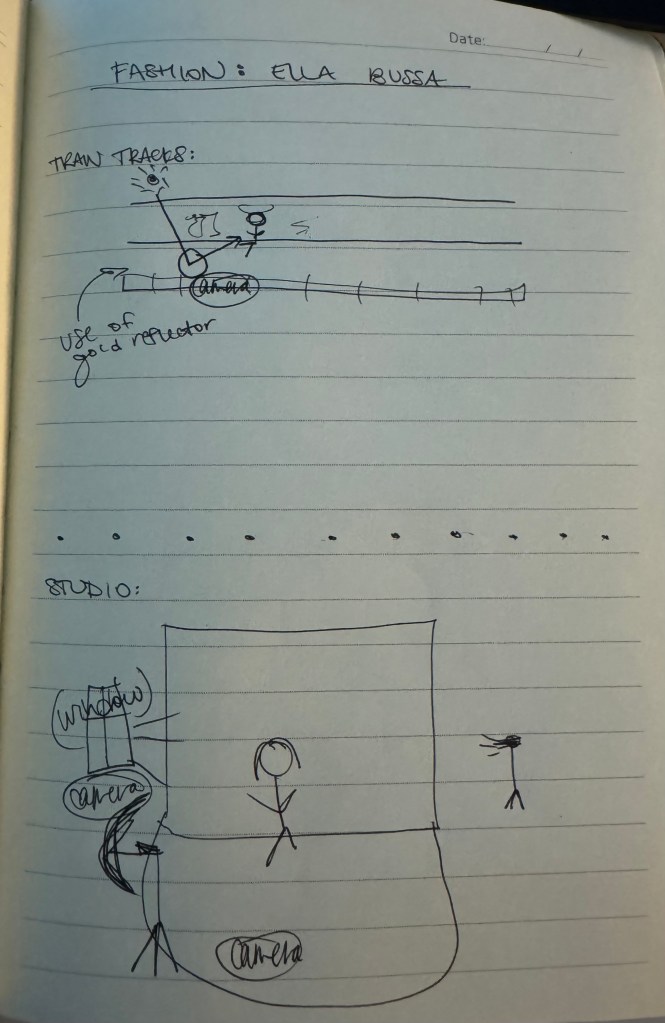 Date: / /
FASHION: ELLA BUSSA
TRAIN TRACKS:
camera
use of
gold reflector
STUDIO:
(window)
camera
camera